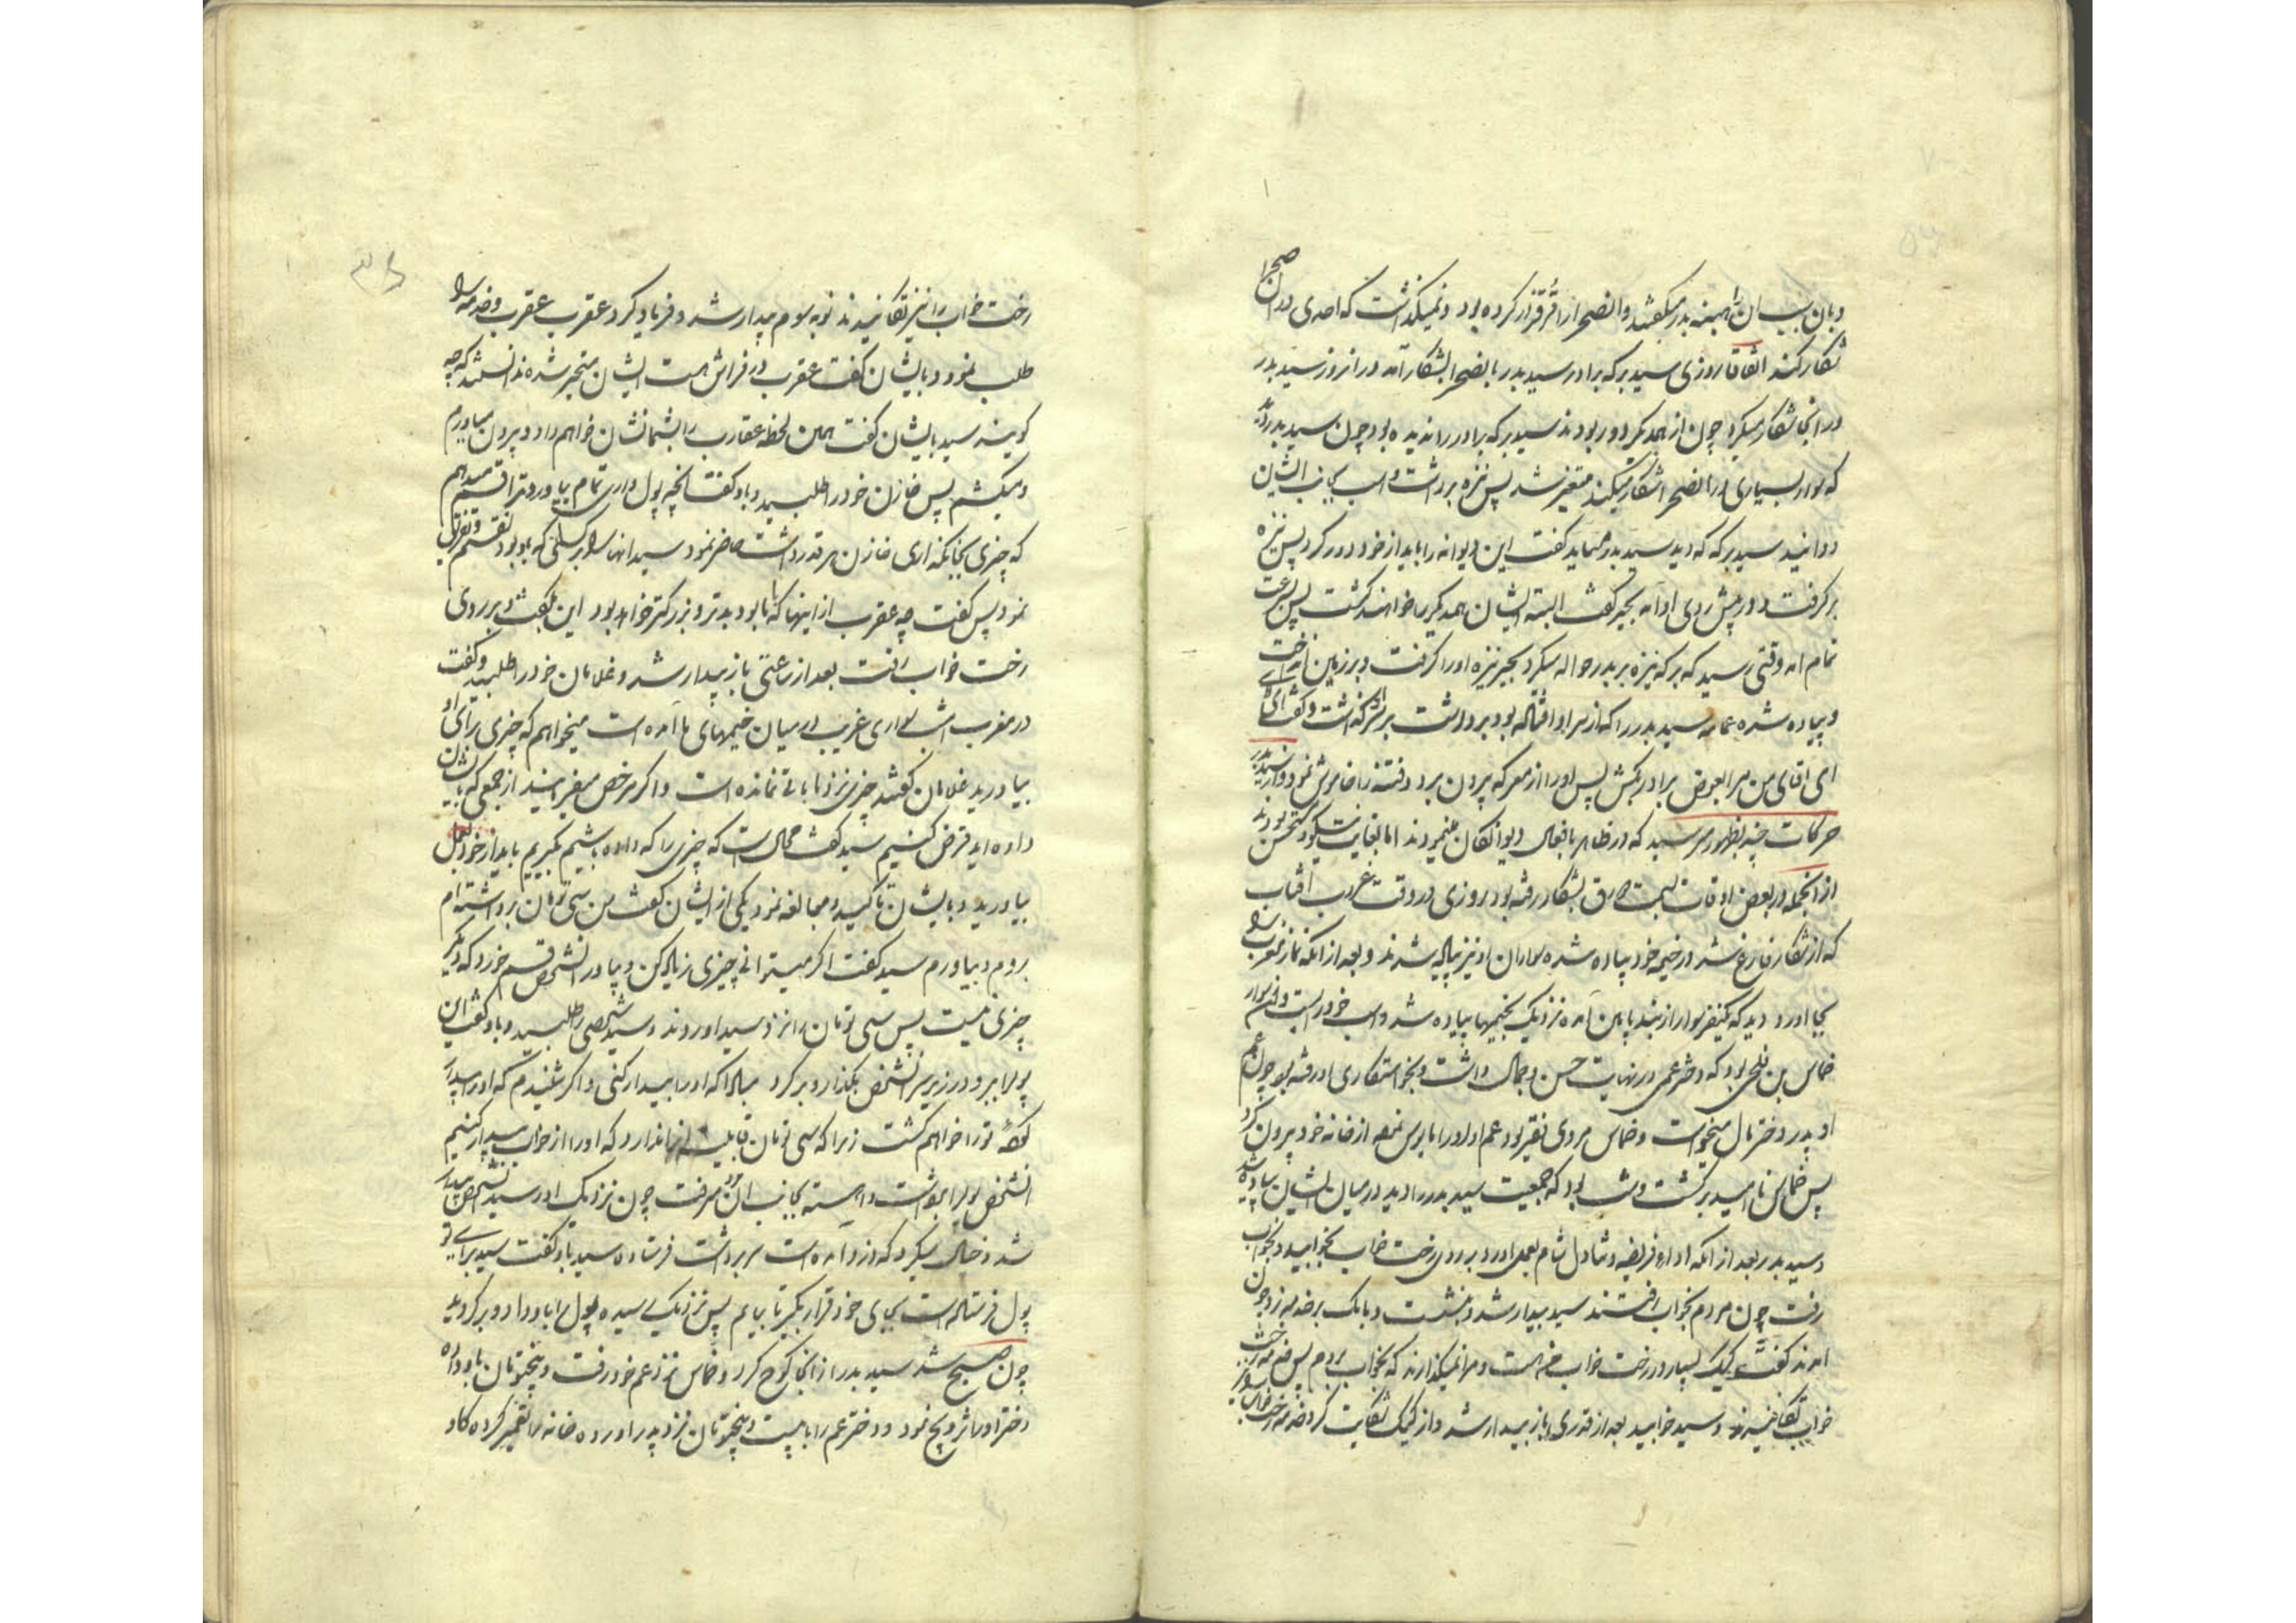 و بان سبب ان را همینه بدر میگفتند و انصحرا را قرق قرار کرده بود و نمیگذاشت که احدی در ان صحرا
شکار کند اتفاقا روزی سید برکه برادر سید بدر بانصحرا بشکار آمد و در انروز سید بدر
در انجا شکار میکرد چون از همدیگر دور بودند سید برکه برادر را ندیده بود چون سید بدر دید
که سوار بسیاری در انصحرا شکار میکنند متغیر شد پس نیزه برداشت و اسب بجانب ایشان
دوانید سید برکه که دید سید بدر میاید گفت این دیوانه را باید از خود دور کرد پس نیزه
برگرفت و در پیش روی او آمد بجیر گفت البته ایشان همدیگر را خواهند کشت پس بسرعت
تمام امد وقتی رسید که برکه نیزه بر بدر حواله میکرد بجیر نیزه او را گرفت و بر زمین انداخت
و پیاده شده عمامه سید بدر را که از سر او افتاده بود برداشت بر سرش گذاشت و گفت ای
ای اقای من مرا بعوض برادر بکش پس او را از معرکه بیرون برد و فتنه را خاموش نمود و از سید بدر
حرکات چند بظهور میرسید که در ظاهر بافعال دیوانگان مینمودند اما بغایت نیکو و مستحسن بودند
از انجمله در بعض اوقات بسمت شرق بشکار رفته بود روزی در وقت غروب افتاب
که از شکار فارغ شد در خیمه خود پیاده شده سواران او نیز پیاده شدند و بعد از انکه نماز مغرب را
بجا اورد دید که یکنفر سوار از بلند پایین آمده نزدیک بخیمها پیاده شد و اسب خود را بست و ان سوار
خماس بن فلحی بود که دختر عمی در نهایت حسن و جمال داشت و بخواستکاری او رفته بود چون عم
او پدر دختر مال میخواست و خماس مردی فقیر بود عم او او را مایوس نموده از خانه خود بیرون کرد
پس خماس ناامید برگشت و شب بود که جمعیت سید بدر را دید در میان ایشان پیاده شد
و سید بدر بعد از انکه اداء فریضه و تناول شام بعمل اورد بر روی رخت خواب بخوابید و بخواب
رفت چون مردم بخواب رفتند سید بیدار شد و بنشست و بانک بر خدمه زد چون
امدند گفت کیک بسیار در رخت خواب من هست و مرا نمیگذارند که بخواب بروم پس خدمه رخت
خواب تکانیدند و سید خوابید بعد از قدری باز بیدار شد و از کیک شکایت کرد خدمه رخت خواب را نیز
رخت خواب را نیز تکانیدند نوبه سوم بیدار شد و فریاد کرد عقرب عقرب و خدمه را
طلب نمود و بایشان گفت عقرب در فراش هست ایشان متحیر شده ندانستند که چه
گویند سید بایشان گفت همین لحظه عقارب را بشما نشان خواهم داد و بیرون میاورم
و میکشم پس خازن خود را طلبید و باو گفت انچه پول داری تمام بیاور و ترا قسم میدهم
که چیزی بجا نگذاری خازن هر قدر داشت حاضر نمود سید انها را بر کسانی که با او بودند تقسیم و تفریق
نمود پس گفت چه عقرب از اینها که با ما بود بدتر و بزرگتر خواهد بود این بگفت و بر روی
رخت خواب رفت بعد از ساعتی باز بیدار شد و غلامان خود را طلبید و گفت
در مغرب امشب سواری غریب در میان خیمهای ما آمده است میخواهم که چیزی برای او
بیاورید غلامان گفتند چیزی نزد ما باقی نمانده است و اگر مرخص میفرمایند از جمعی که بایشان
داده اید قرض کنیم سید گفت محال است که چیزی را که داده باشیم بگیریم باید از خود بعمل
بیاورید و بایشان تاکید و مبالغه نمود یکی از ایشان گفت من سی تومان برداشته ام
بروم و بیاورم سید گفت اگر میتوانی چیزی زیاد کن و بیاور انشخص قسم خورد که دیگر
چیزی نیست پس سی تومان را نزد سید اوردند و سید شخصی را طلبید و باو گفت این
پول را ببر و در زیر سر انشخص بگذار و برگرد مبادا که او را بیدار کنی و اگر شنیدم که او را بیدار
کرده تو را خواهم کشت زیرا که سی تومان قابلیت انرا ندارد که او را از خواب بیدار کنیم
انشخص پول را برداشت و اهسته بجانب ان مرد رفت چون نزدیک او رسید انشخص بیدار
شد و خیال میکرد که دزد آمده است سر برداشت فرستاده سید باو گفت سید برای تو
پول فرستاده است بجای خود قرار بگیر تا بیایم پس نزدیک رسیده پول را باو داد و برگردید
چون صبح شد سید بدر از انجا کوچ کرد و خماس نزد عم خود رفت و پنج تومان باو داده
دختر او را تزویج نمود و دختر عم را با بیست و پنج تومان نزد پدر اورده خانه را تعمیر کرده گاو